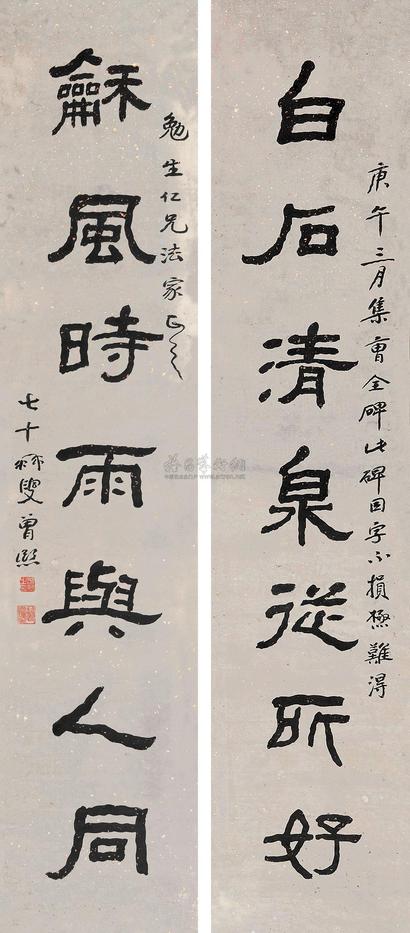 庚午三月集曹全碑此碑因字不損極難得
白石清泉從所好
勉生仁兄法家正之
龢風時雨與人同
七十叟曾熙